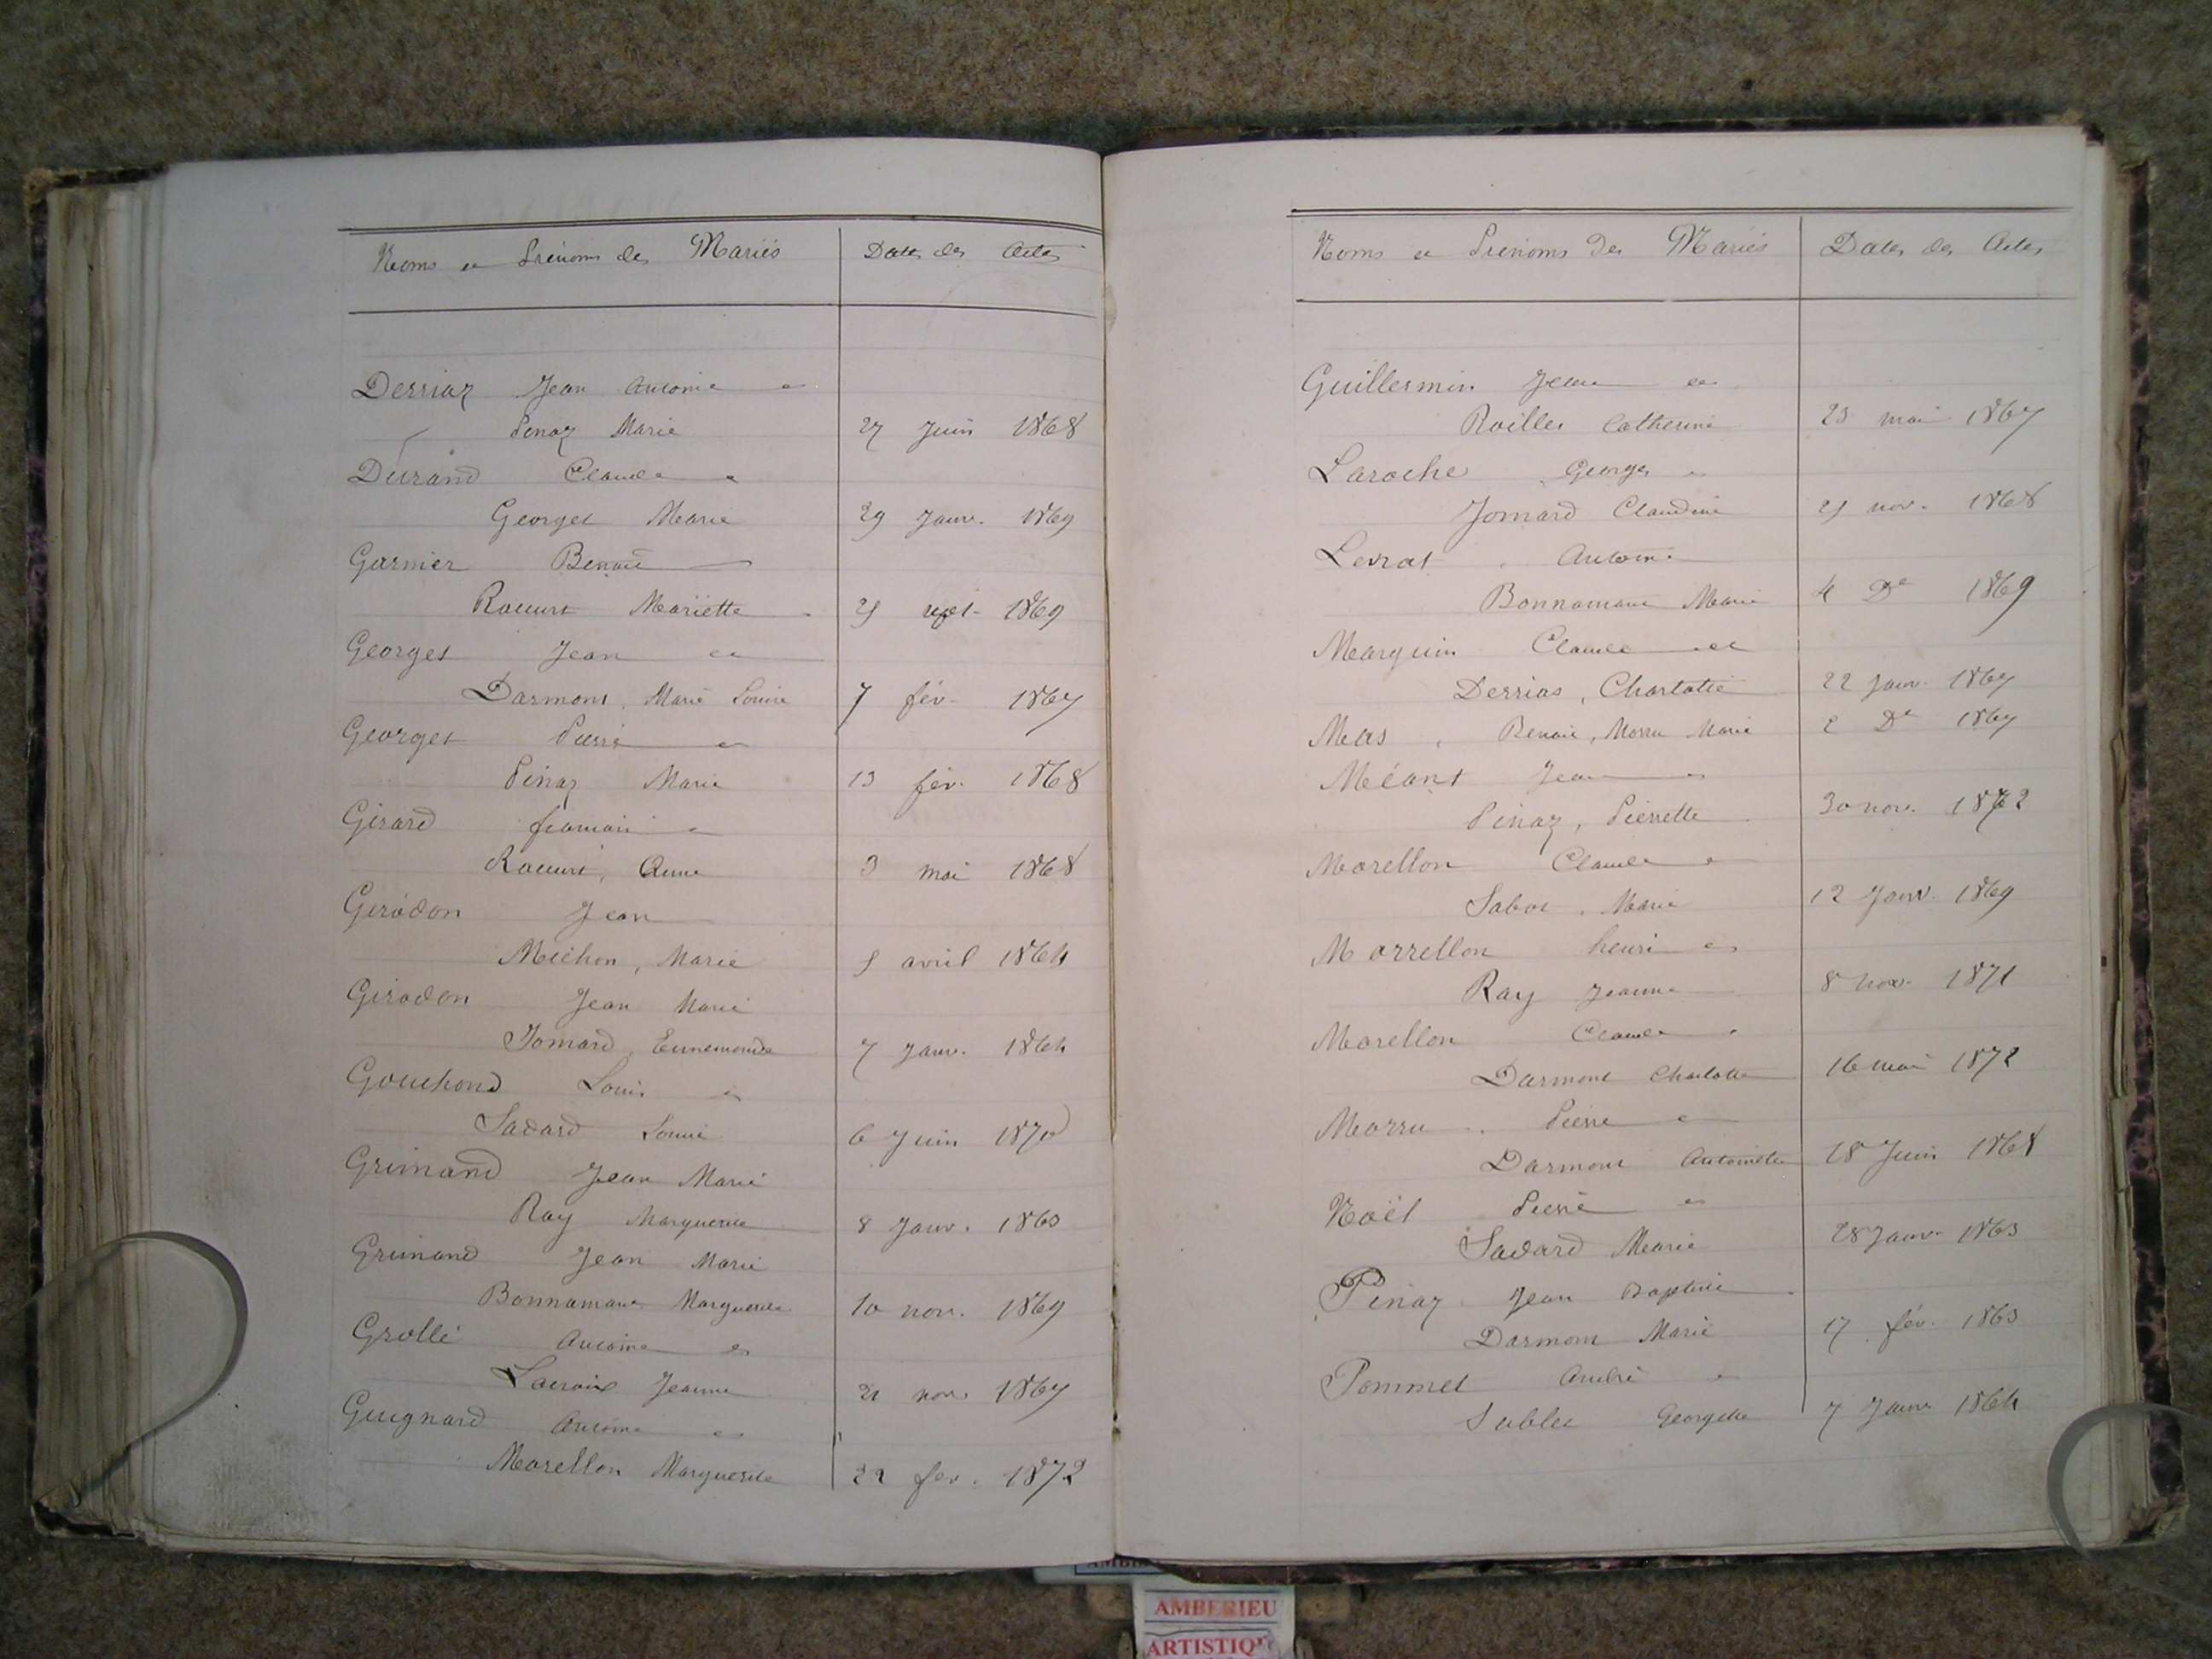 Noms et Prénoms des Mariés Dates des Actes
Derriaz Jean Antoine et
Pinaz Marie 27 Juin 1868
Durand Claude et
Georget Marie 29 Janv. 1869
Garnier Benoit
Racurt Mariette 1869
Georges Jean et
Darmont, Marie Louise 7 fév. 1867
Georget Pierre et
Pinaz Marie 13 fév. 1868
Girard et
Racurt, Anne 3 mai 1868
Girodon Jean
Michon, Marie 5 avril 1864
Girodon Jean Marie
Jomard, Ennemonde 7 Janv. 1864
Gouchond Louis et
Savard Louise 6 Juin 1870
Grimand Jean Marie
Ray Marguerite 8 Janv. 1863
Grimand Jean Marie
Bonnamant Marguerite 10 nov. 1869
Grollé Antoine et
Lacroix Jeanne 21 nov. 1867
Guignard Antoine et
Morellon Marguerite 22 fev. 1872
Noms et Prénoms des Mariés Dates des Actes
Guillermin et
Roilles Catherine 23 mai 1867
Laroche Georges et
Jomard Claudine nov. 1868
Levrat Antoine
Bonnamant Marie 4 De 1869
Marguin Claude et
Derrias, Charlotte 22 Janv. 1867
Mas, Benoit, Morru Marie 2 De 1867
Méant Jean et
Pinaz, Pierrette 30 nov. 1872
Morellon Claude et
Sabot, Marie 12 Janv. 1869
Morrellon henri et
Ray Jeanne 8 nov. 1871
Morellon Claude et
Darmont Charlotte 16 mai 1872
Morru Pierre et
Darmont Antoinette 18 Juin 1868
Noël Pierre et
Savard Marie 28 Janv. 1863
Pinaz Jean Baptiste
Darmont Marie 17 fév. 1863
Pommet André et
Sublet Georgette 7 Janv 1864
AMBERIEU
ARTISTIQU